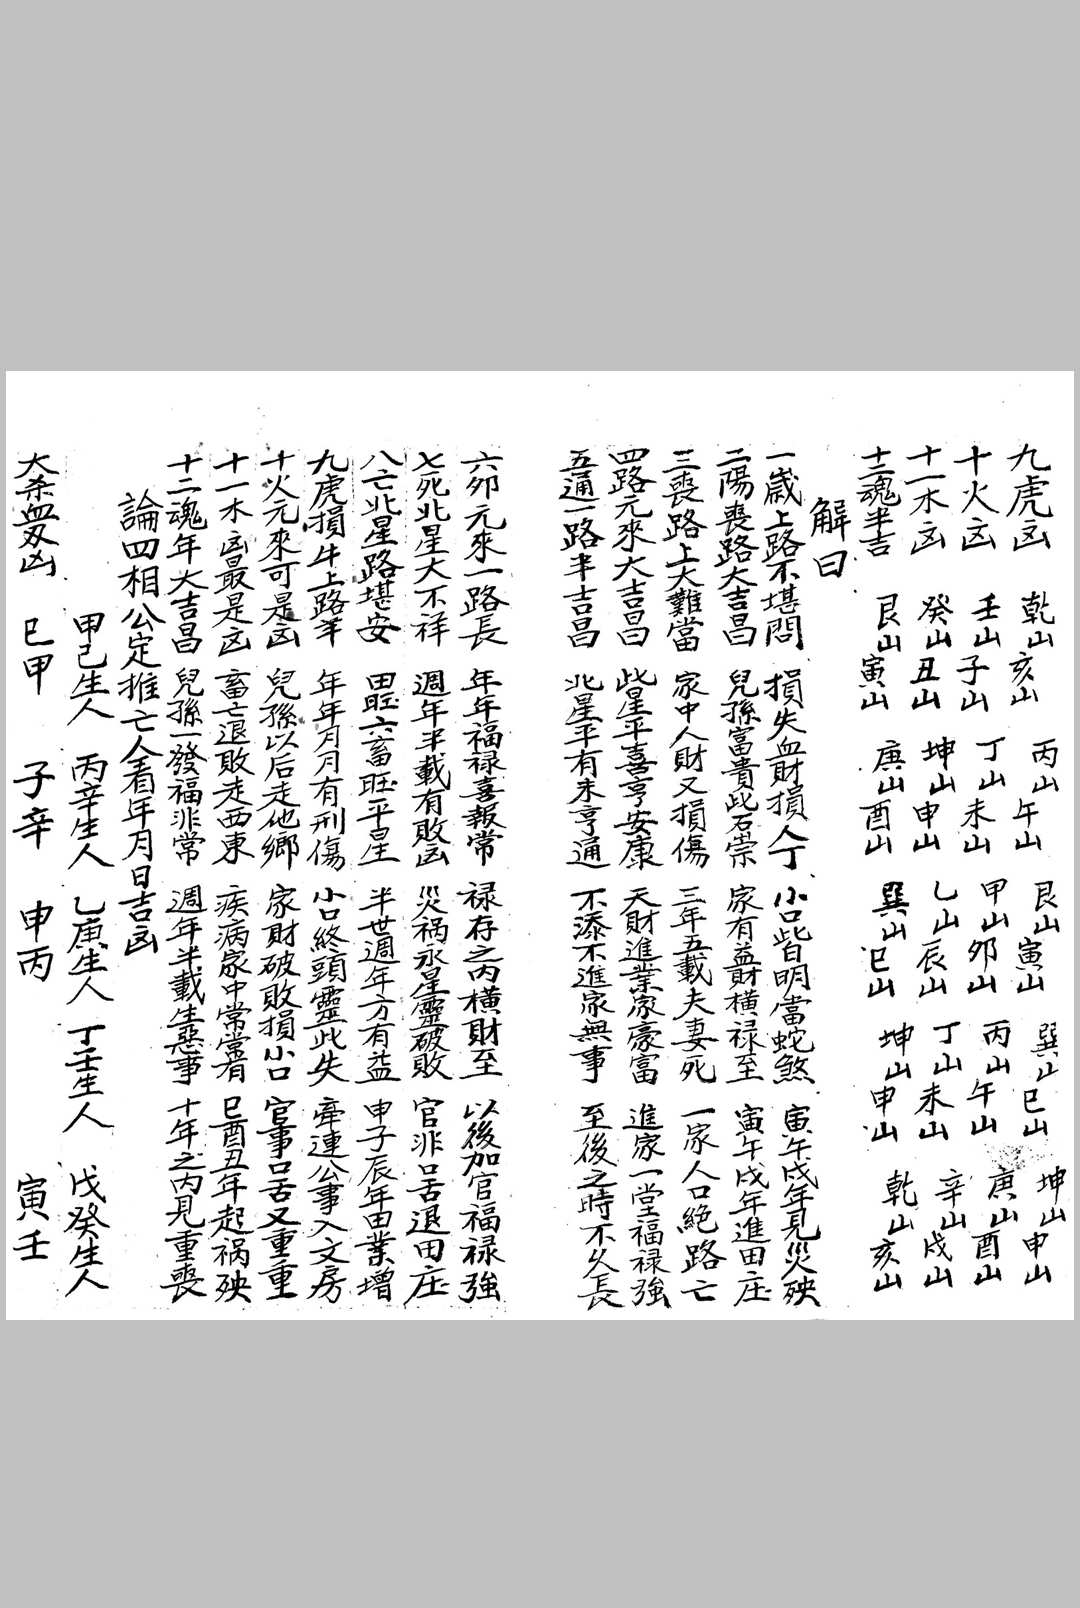 九虎凶 乾山亥山 丙山午山 艮山寅山 巽山巳山 坤山申山
十火凶 壬山子山 丁山未山 甲山卯山 丙山午山 庚山酉山
十一木凶 癸山丑山 坤山申山 乙山辰山 丁山未山 辛山戌山
十二魂半吉 艮山寅山 庚山酉山 巽山巳山 坤山申山 乾山亥山
解曰
一歲上路不堪問 損失血財損人丁 小口皆明當蛇煞 寅午戌年見災殃
二陽喪路大吉昌 兒孫富貴此石崇 家有益財橫禄至 寅午戌年進田庄
三喪路上大難當 家中人財又損傷 三年五載夫妻死 一家人口絕路亡
四路元來大吉昌 此星平喜亨安康 天財進業家豪富 進家一堂福禄強
五通一路半吉昌 北星平有未亨通 不添不進家無事 至後之時不久長
六卯元來一路長 年年福禄喜報常 禄存之内橫財至 以後加官福禄強
七死北星大不祥 週年半載有敗凶 災祸永星靈破敗 官非口舌退田庄
八亡北星路堪安 田旺六畜旺平星 半世週年方有益 申子辰年田業增
九虎損牛上路羊 年年月月有刑傷 小口終頭靈此失 牽連公事入文房
十火元來可是凶 兒孫以后走他鄉 家財破敗損小口 官事口舌又重重
十一木凶最是凶 畜亡退敗走西東 疾病家中常常有 巳酉丑年起祸殃
十二魂年大吉昌 兒孫一發福非常 週年半載生惡事 十年之内見重喪
論四相公定推亡人看年月日吉凶
甲己生人 丙辛生人 乙庚生人 丁壬生人 戊癸生人
大杀血刃凶 巳甲 子辛 申丙 寅壬